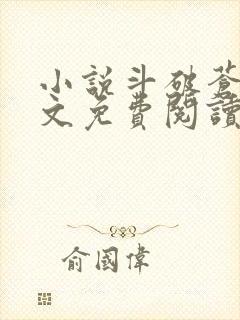 小說斗破蒼
文免費閱讀
俞國偉